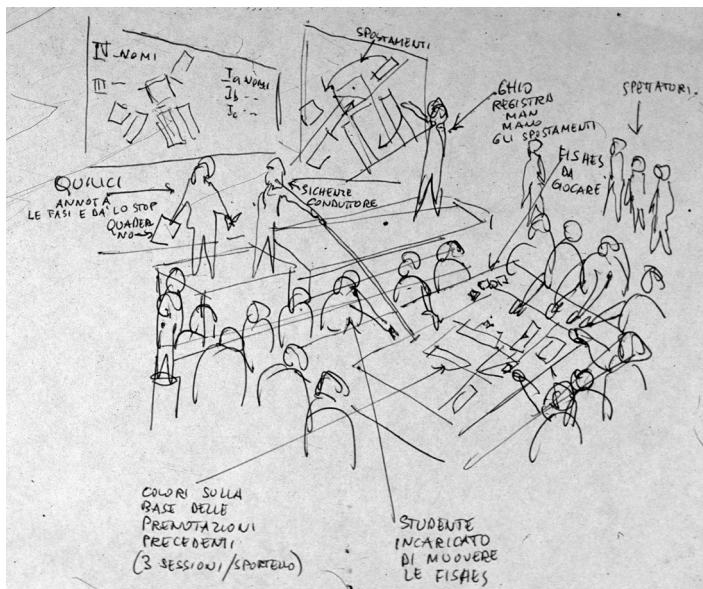 IV NOMI
III -
Ia NOMI
Ib - -
Ic - -
SPOSTAMENTI
GHIO
REGISTRA
MAN
MANO
GLI SPOSTAMENTI
SPETTATORI
FISHES
DA
GIOCARE
QUILICI
ANNOTA
LE FASI E DA' LO STOP
QUADER
NO
SICHENZE
CONDUTTORE
COLORI SULLA
BASE DELLE
PRENOTAZIONI
PRECEDENTI
(3 SESSIONI/SPORTELLO)
STUDENTE
INCARICATO
DI MUOVERE
LE FISHES